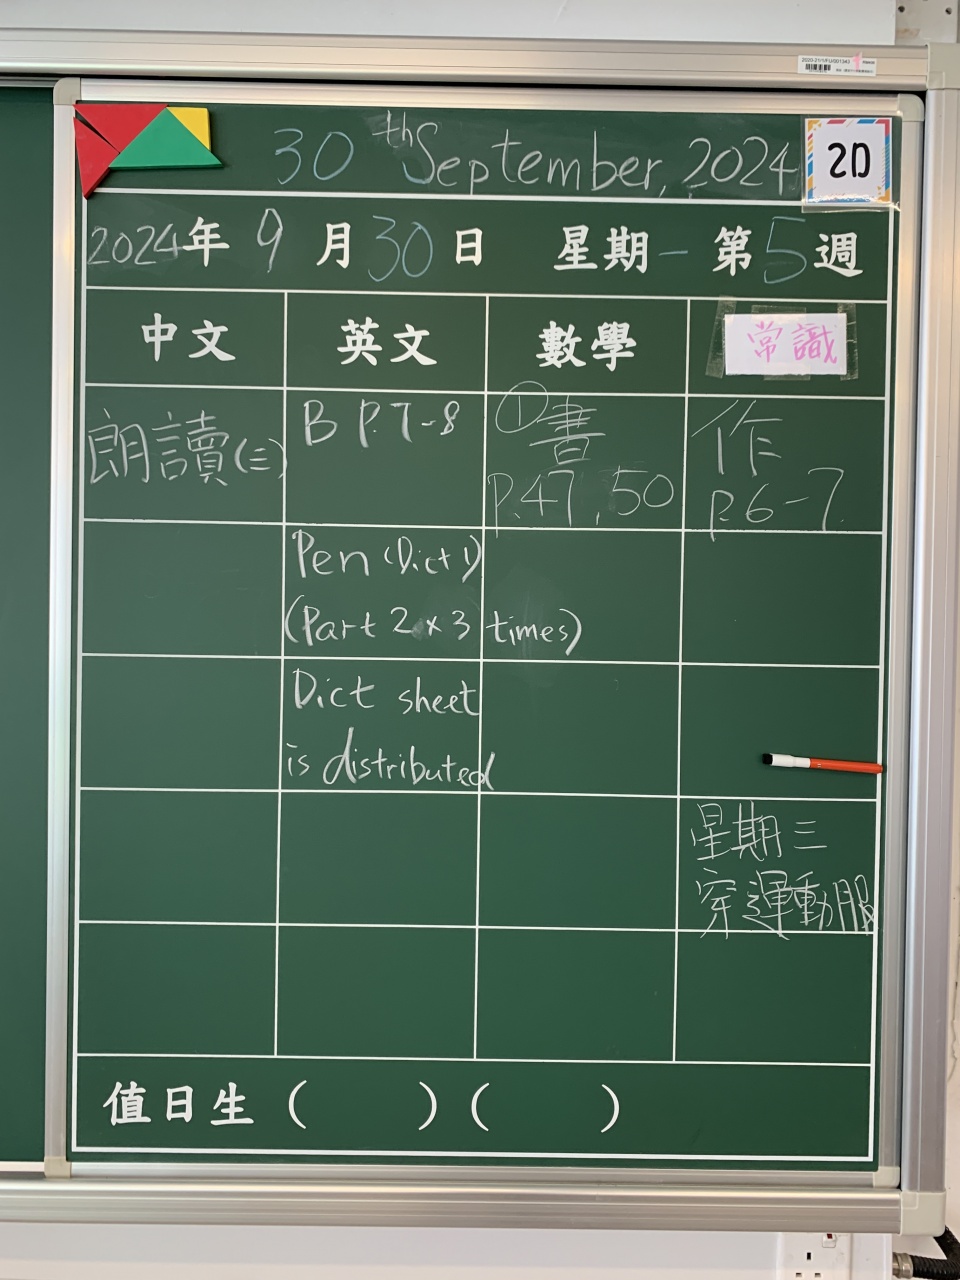 2020-21/1/FU/001343
30th September, 2024
2D
2024年9月30日 星期一 第5週
中文 英文 數學 常識
朗讀(三) B P.7-8 ①書 作
P.47, 50 P.6-7
Pen (Dict 1)
(Part 2 x 3 times)
Dict sheet
is distributed
星期三
穿運動服
值日生 ( ) ( )